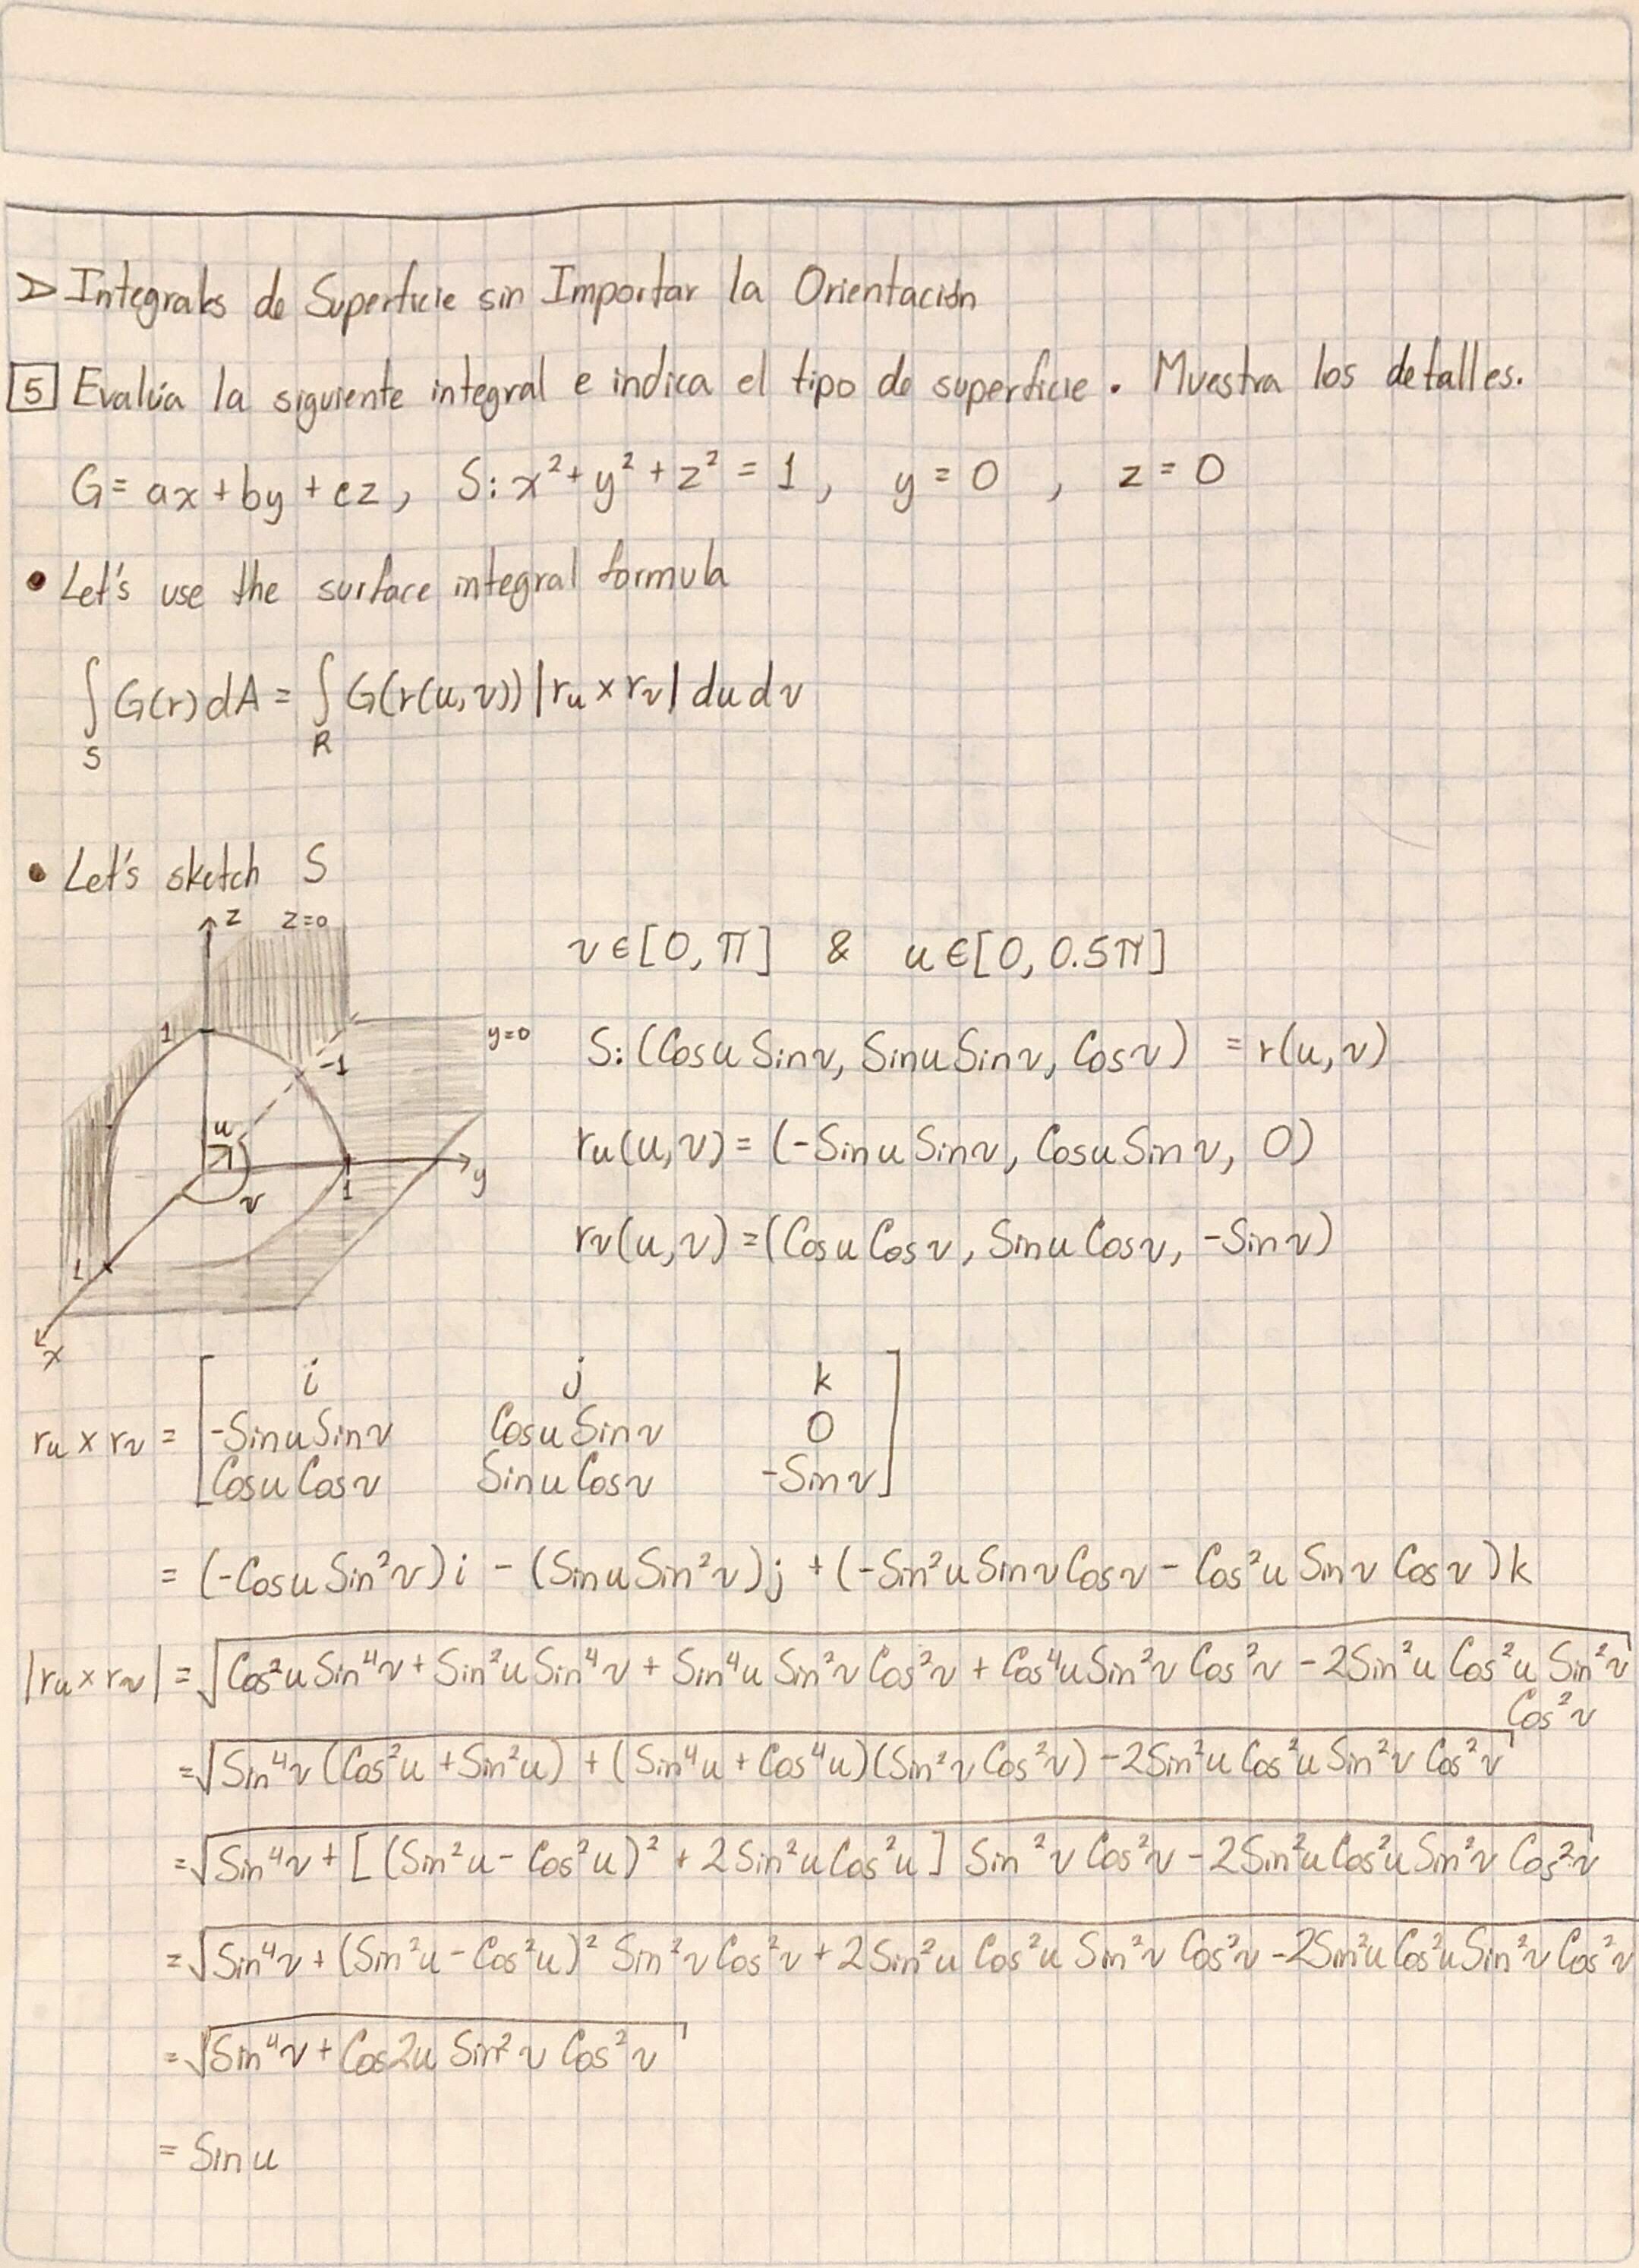 ▷ Integrales de Superficie sin Importar la Orientación
5 Evalúa la siguiente integral e indica el tipo de superficie. Muestra los detalles.
G = ax + by + cz, S: x² + y² + z² = 1, y = 0, z = 0
• Let's use the surface integral formula
∫_S G(r) dA = ∫_R G(r(u,v)) |ru × rv| du dv
• Let's sketch S
z z=0
v ∈ [0, π] & u ∈ [0, 0.5π]
1 y=0
-1
S: (Cosu Sinv, Sinu Sinv, Cosv) = r(u,v)
u
ru(u,v) = (-Sinu Sinv, Cosu Sinv, 0)
1 y
v
rv(u,v) = (Cosu Cosv, Sinu Cosv, -Sinv)
1
x
i j k
ru × rv = [-Sinu Sinv Cosu Sinv 0
Cosu Cosv Sinu Cosv -Sinv]
= (-Cosu Sin²v)i - (Sinu Sin²v)j + (-Sin²u Sinv Cosv - Cos²u Sinv Cosv)k
|ru × rv| = √(Cos²u Sin⁴v + Sin²u Sin⁴v + Sin⁴u Sin²v Cos²v + Cos⁴u Sin²v Cos²v - 2Sin²u Cos²u Sin²v
Cos²v)
= √(Sin⁴v (Cos²u + Sin²u) + (Sin⁴u + Cos⁴u)(Sin²v Cos²v) - 2Sin²u Cos²u Sin²v Cos²v)
= √(Sin⁴v + [(Sin²u - Cos²u)² + 2Sin²u Cos²u] Sin²v Cos²v - 2Sin²u Cos²u Sin²v Cos²v)
= √(Sin⁴v + (Sin²u - Cos²u)² Sin²v Cos²v + 2Sin²u Cos²u Sin²v Cos²v - 2Sin²u Cos²u Sin²v Cos²v)
= √(Sin⁴v + Cos2u Sin²v Cos²v)
= Sinu